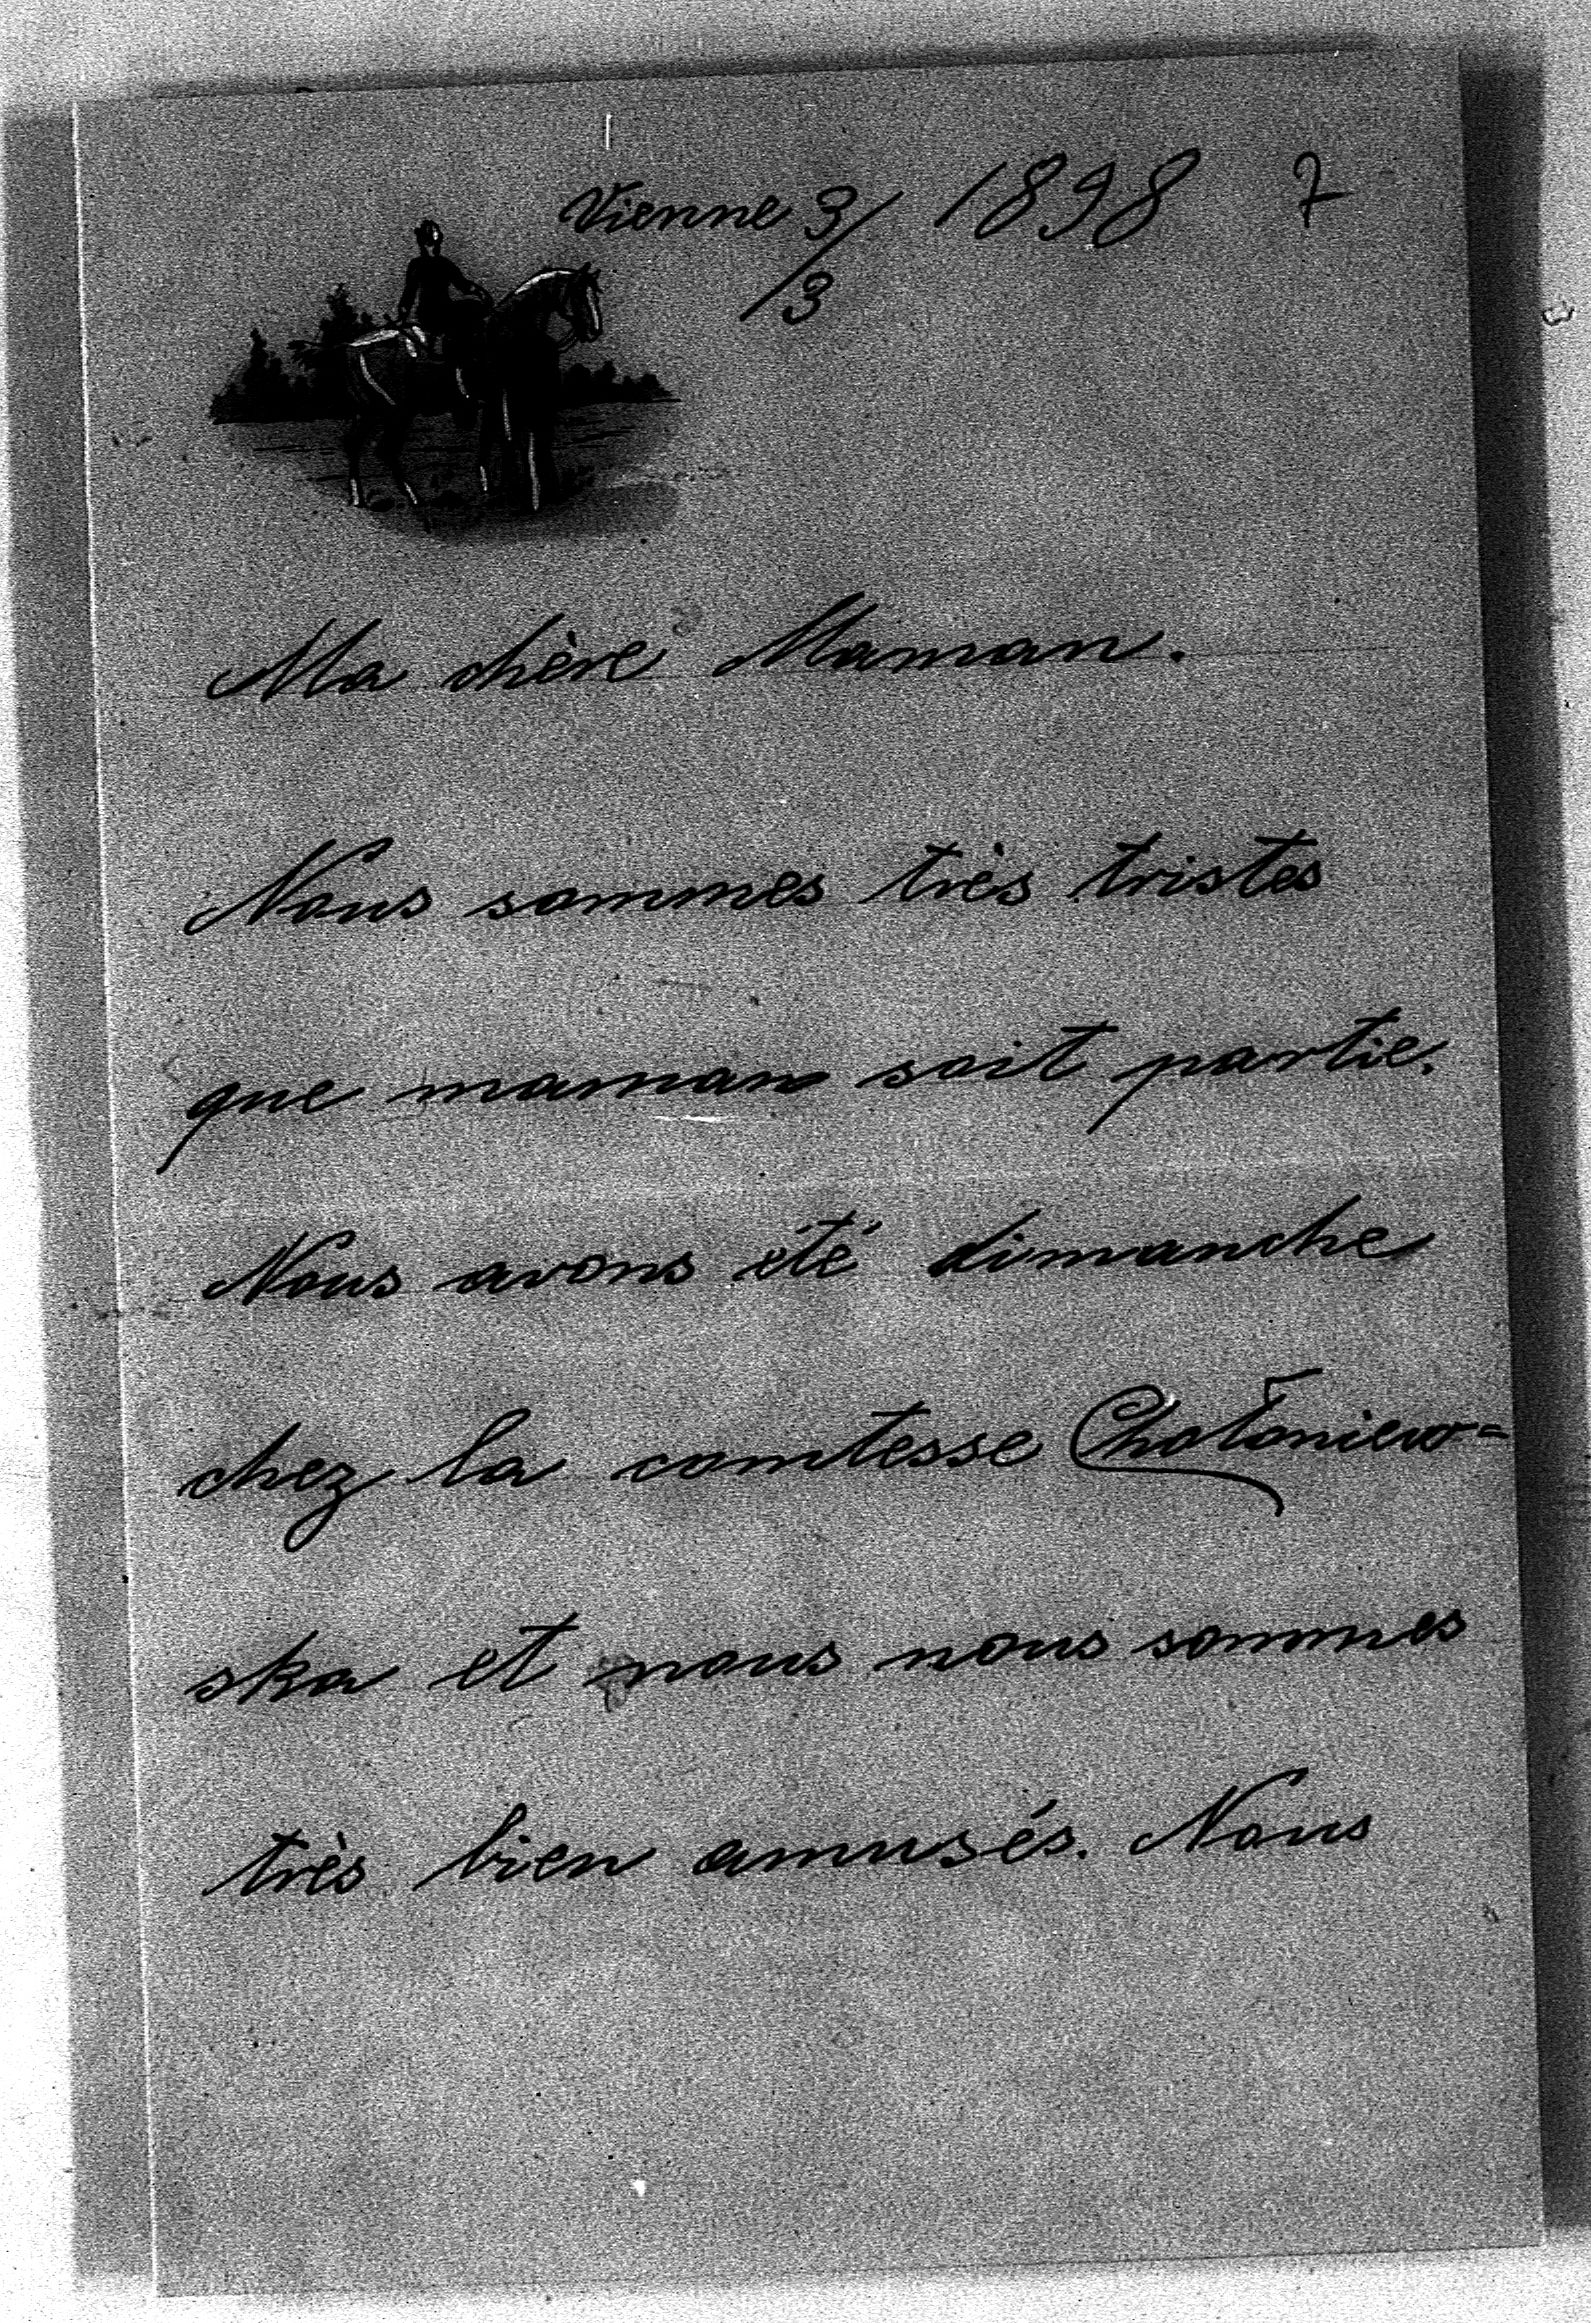 Vienne 3/3 1898 7
Ma chère Maman.
Nous sommes très tristes
que maman soit partie.
Nous avons été dimanche
chez la comtesse Chołoniew=
ska et nous nous sommes
très bien amusés. Nous